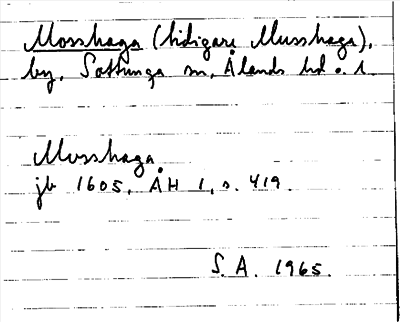 Mosshaga (tidigare Musshaga),
by, Sottunga sn, Ålands hd o. l.
Mosshaga.
jb 1605, ÅH 1, s. 419.
S. A. 1965.